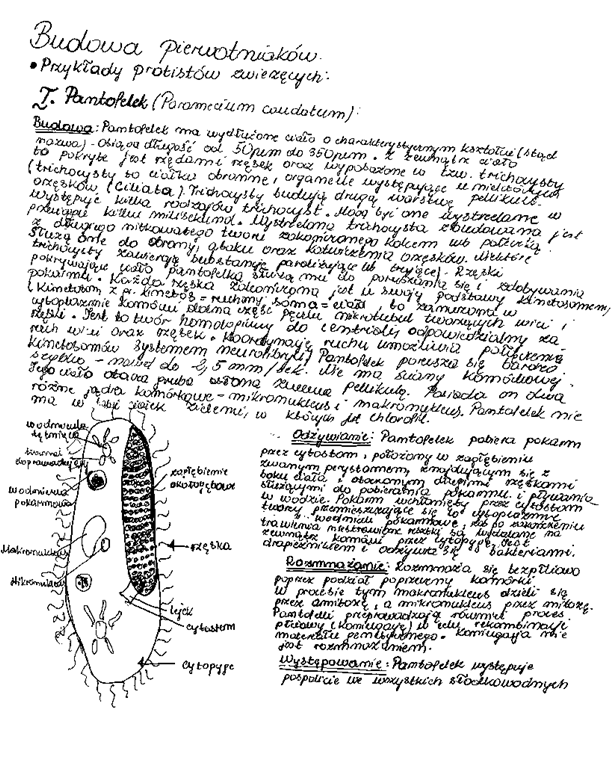 Budowa pierwotniaków.
• Przykłady protistów zwierzęcych:
I. Pantofelek (Paramecium caudatum):
Budowa: Pantofelek ma wydłużone ciało o charakterystycznym kształcie (stąd
nazwa) - osiąga długość od 50μm do 350μm. Z zewnątrz ciało
to pokryte jest rzędami rzęsek oraz wyposażone w tzw. trichocysty
(trichocysty to ciałka obronne, organelle występujące u niektórych
orzęsków (Ciliata). Trichocysty budują drugą warstwę pellikuli.
Występuje kilka rodzajów trichocyst. Mogą być one wystrzelane w
przeciągu kilku milisekund. Wystrzelona trichocysta zbudowana jest
z długiego nitkowatego tworu zakończonego kolcem lub pałeczką.
Służą one do obrony, ataku oraz kotwiczenia orzęsków. Niektóre
trichocysty zawierają substancje paraliżujące lub trujące). Rzęski
pokrywające ciało pantofelka służą mu do poruszania się i zdobywania
pokarmu. Każda rzęska zakończona jest u swojej podstawy kinetosomem
(kinetosom, z gr. kinetós = ruchomy, sóma = ciało, to zanurzona w
cytoplazmie komórki dolna część pęczku mikrotubul tworzących wici i
rzęski. Jest to twór homologiczny do centrioli, odpowiedzialny za
ruch wici oraz rzęsek). Koordynację ruchu umożliwia połączenie
kinetosomów systemem neurofibryli. Pantofelek porusza się bardzo
szybko - nawet do 2,5 mm/sek. Nie ma ściany komórkowej.
Jego ciało otacza gruba osłona zwana pellikulą. Posiada on dwa
różne jądra komórkowe - mikronukleus i makronukleus. Pantofelek nie
ma w sobie ciałek zieleni, w których jest chlorofil.
wodniczka
tętniąca
kanał
doprowadzający
wodniczka
pokarmowa
Makronukleus
Mikronukleus
zagłębienie
okołogębowe
rzęska
lejek
cytostom
cytopyge
Odżywianie: Pantofelek pobiera pokarm
przez cytostom, położony w zagłębieniu
zwanym perystomem, znajdującym się z
boku ciała i otoczonym długimi rzęskami
służącymi do pobierania pokarmu i pływania
w wodzie. Pokarm wchłonięty przez cytostom
tworzy przemieszczające się po cytoplazmie
wodniczki pokarmowe, zaś po zakończeniu
trawienia niestrawione resztki są wydalane na
zewnątrz komórki przez cytopyge. Jest
drapieżnikiem i odżywia się bakteriami.
Rozmnażanie: Rozmnaża się bezpłciowo
poprzez podział poprzeczny komórki
W procesie tym makronukleus dzieli się
przez amitozę, a mikronukleus przez mitozę.
Pantofelki przeprowadzają również proces
płciowy (koniugację) w celu rekombinacji
materiału genetycznego. Koniugacja nie
jest rozmnażaniem.
Występowanie: Pantofelek występuje
pospolicie we wszystkich słodkowodnych